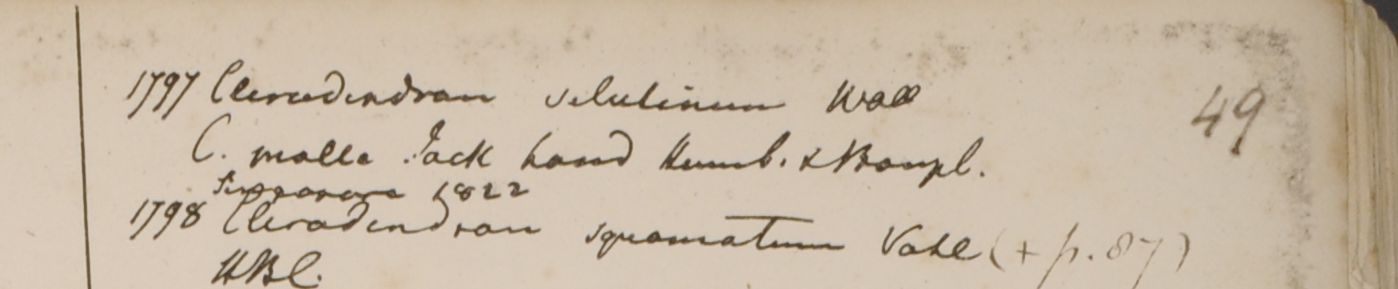 1797 Clerodendron velutinum Wall
49
C. molle Jack haud Humb. & Bonpl.
Singapore 1822
1798 Clerodendron squamatum Vahl (+ p. 87)
HBC.